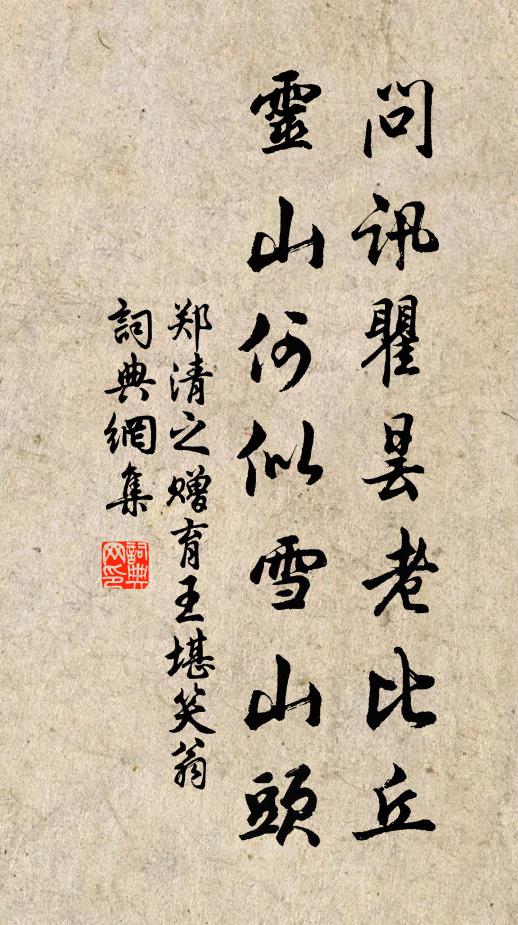 問訊瞿曇老比丘
靈山何似雪山頭
郑清之赠育王堪笑翁
詞典網集
詞典
网印